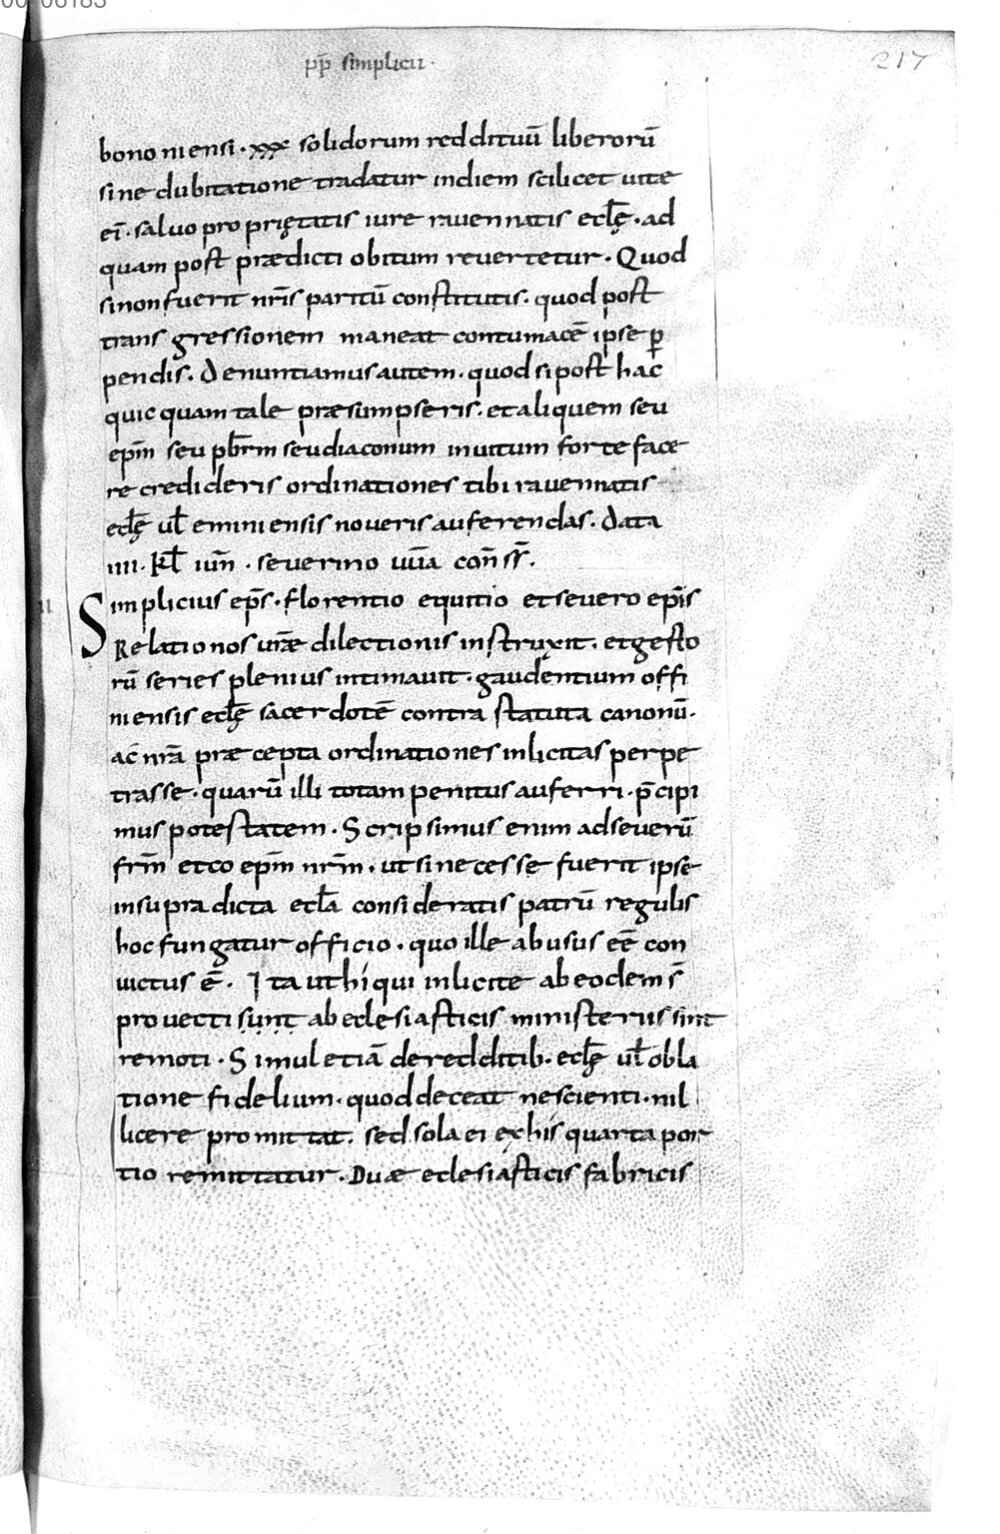 pp̄ simplicii·
217
bononiensi· xxx solidorum reddituū liberorū
sine dubitatione tradatur indiem scilicet uitæ
ei᷎· saluo proprię tatis iure rauennatis eclę̄· ad
quam post prædicti obitum reuertetur· Quod
sinonfuerit nr̄is paritū constitutis· quod post
transgressionem maneat contumacē ipse p̱
pendis· Denuntiamus autem· quod si post hac
quicquam tale præsumpseris· et aliquem seu
ep̄m seu pb̄rm seu diaconum inuitum forte face
re credideris ordinationes tibi rauennatis
eclę̄ ul̄ eminiensis noueris auferendas· Data
iiii· kl̄ iun̄· seuerino uūa con̄ss̄·
ii
Simplicius ep̄s· florentio equitio et seuero ep̄is
Relatio nos ur̄æ dilectionis instruxit· et gesto
rū series plenius intimauit· gaudentium offi
niensis eclę̄ sacerdotē contra statuta canonū·
ac̄ nr̄a præcepta ordinationes inlicitas perpe
trasse· quarū illi totam penitus auferri· p̄cipi
mus potestatem· Scripsimus enim ad seuerū
frm̄ et co ep̄m nr̄m· ut si necesse fuerit ipse
insupra dicta ecl̄a consideratis patrū regulis
hoc fungatur officio· quo ille abusus eē con
uictus ē· Ita ut hi qui inlicite ab eodem s̄
prouecti sunt ab eclesiasticis ministeriis sint
remoti· Simul etiā de redditib· eclę̄ ul̄ obla
tione fidelium· quod deceat nescienti· nil
licere promittat· sed sola ei ex his quarta por
tio remittatur· Duæ eclesiasticis fabricis